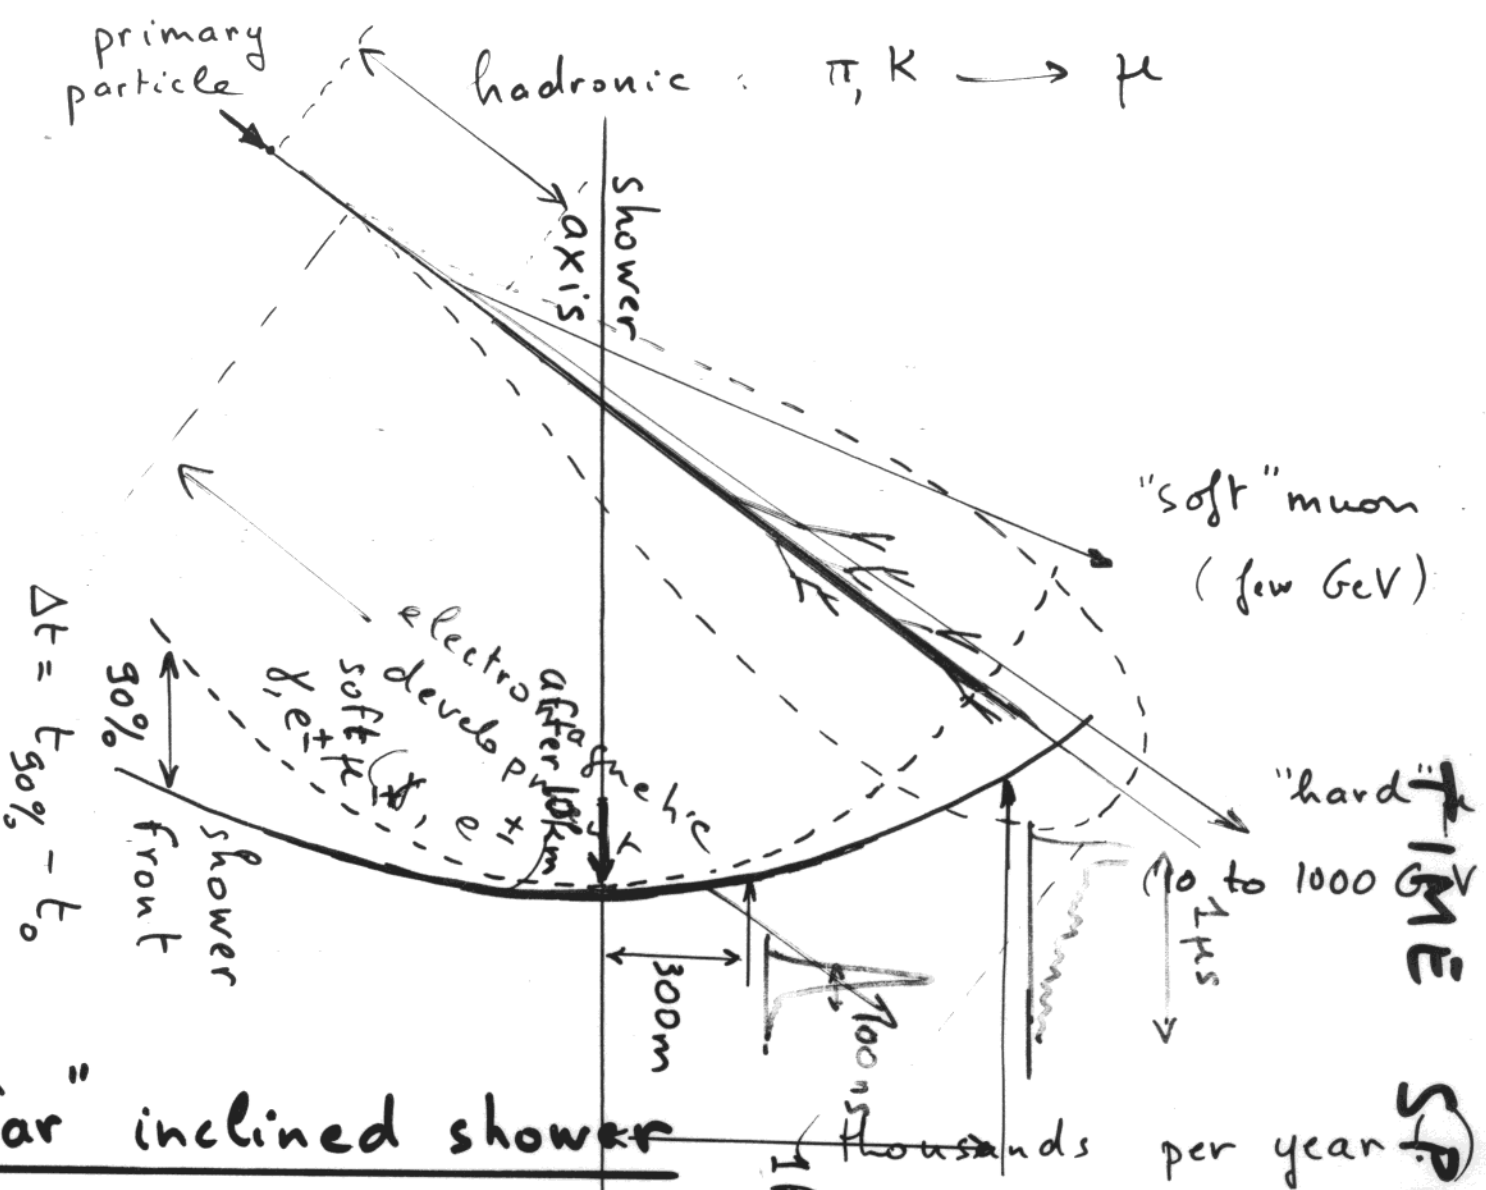 primary
particle
hadronic : π, K → μ
shower
axis
"soft" muon
(few GeV)
"hard"
(10 to 1000 GeV
TIME
1 μs
electromagnetic
development
after 10km
soft μ
γ, e±
(γ, e±,
90%
Δt = t90% - t0
shower
front
300m
100 ns
ar" inclined shower
(thousands per year)